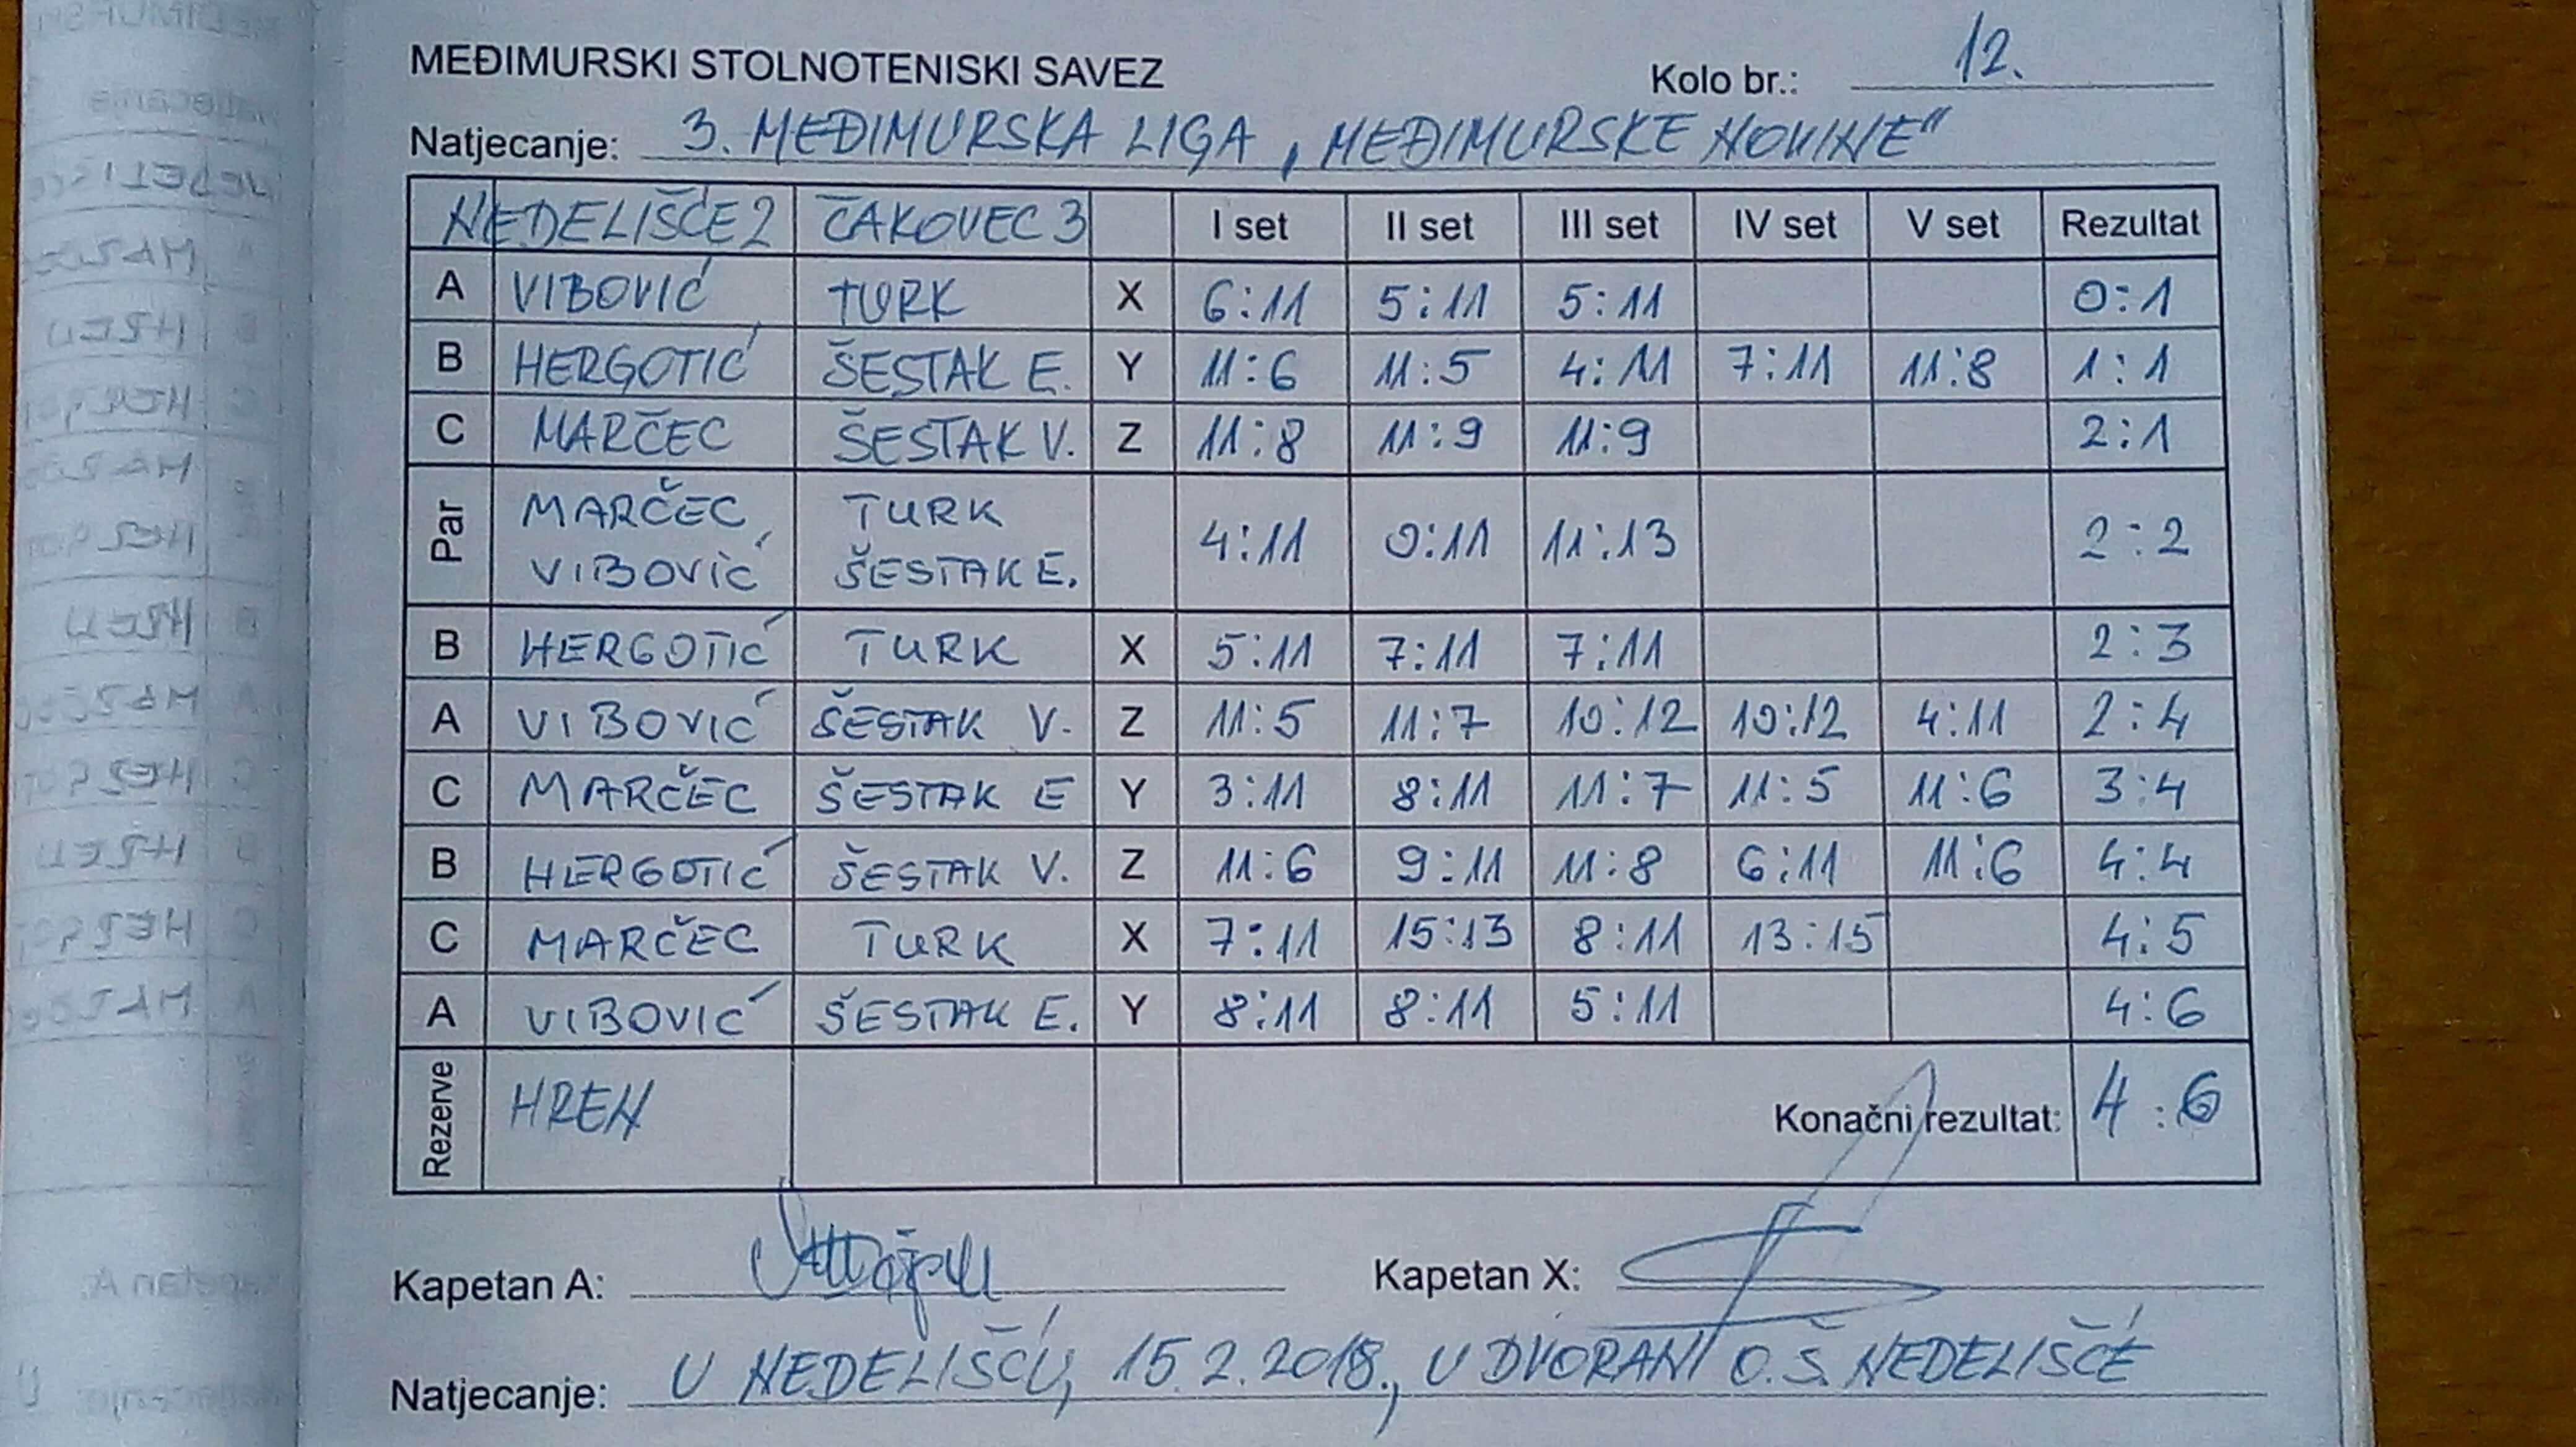 MEĐIMURSKI STOLNOTENISKI SAVEZ
Kolo br.: 12.
Natjecanje: 3. MEĐIMURSKA LIGA „MEĐIMURSKE NOVINE"
NEDELIŠĆE 2 ČAKOVEC 3 I set II set III set IV set V set Rezultat
A VIBOVIĆ TURK X 6:11 5:11 5:11 0:1
B HERGOTIĆ ŠESTAK E. Y 11:6 11:5 4:11 7:11 11:8 1:1
C MARČEC ŠESTAK V. Z 11:8 11:9 11:9 2:1
Par MARČEC VIBOVIĆ TURK ŠESTAK E. 4:11 0:11 11:13 2:2
B HERGOTIĆ TURK X 5:11 7:11 7:11 2:3
A VIBOVIĆ ŠESTAK V. Z 11:5 11:7 10:12 10:12 4:11 2:4
C MARČEC ŠESTAK E Y 3:11 8:11 11:7 11:5 11:6 3:4
B HERGOTIĆ ŠESTAK V. Z 11:6 9:11 11:8 6:11 11:6 4:4
C MARČEC TURK X 7:11 15:13 8:11 13:15 4:5
A VIBOVIĆ ŠESTAK E. Y 8:11 8:11 5:11 4:6
Rezerve HREN Konačni rezultat: 4:6
Kapetan A: Kapetan X:
Natjecanje: U NEDELIŠĆU, 15.2.2018., U DVORANI O.Š. NEDELIŠĆE